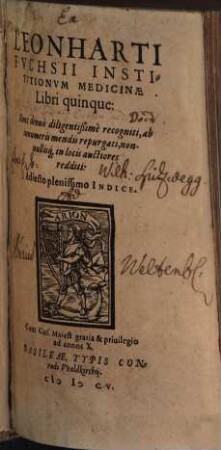 Ex
LEONHARTI
FVCHSII INSTI
TVTIONVM MEDICINÆ
Libri quinque:
Nunc denuò diligentissimè recogniti, ab
innumeris mendis repurgati, non-
nullisq́; in locis auctiores
redditi:
Adiecto plenissimo INDICE.
ARION
Cum Caes. Maiest. gratia & priuilegio
ad annos X.
BASILEÆ, TYPIS CON-
radi Vvaldkirchij.
cIɔ Iɔ C V.